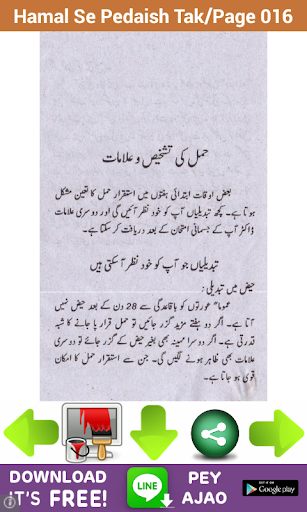 Hamal Se Pedaish Tak/Page 016
حمل کی تشخیص و علامات
بعض اوقات ابتدائی ہفتوں میں استقرار حمل کا تعین مشکل
ہوتا ہے۔ کچھ تبدیلیاں آپ کو خود نظر آئیں گی اور دوسری علامات
ڈاکٹر آپ کے جسمانی امتحان کے بعد دریافت کر سکتا ہے۔
تبدیلیاں جو آپ کو خود نظر آ سکتی ہیں
حیض میں تبدیلی:
عموما" عورتوں کو باقاعدگی سے 28 دن کے بعد حیض نہیں
آتا ہے۔ اگر دو ہفتے مزید گزر جائیں تو حمل قرار پا جانے کا شبہ
قدرتی ہے۔ اگر دوسرا مہینہ بھی بغیر حیض کے گزر جائے تو دوسری
علامات بھی ظاہر ہونے لگیں گی۔ جن سے استقرار حمل کا امکان
قوی ہو جاتا ہے۔
DOWNLOAD
IT'S FREE!
LINE
PEY
AJAO
GET IT ON
Google play